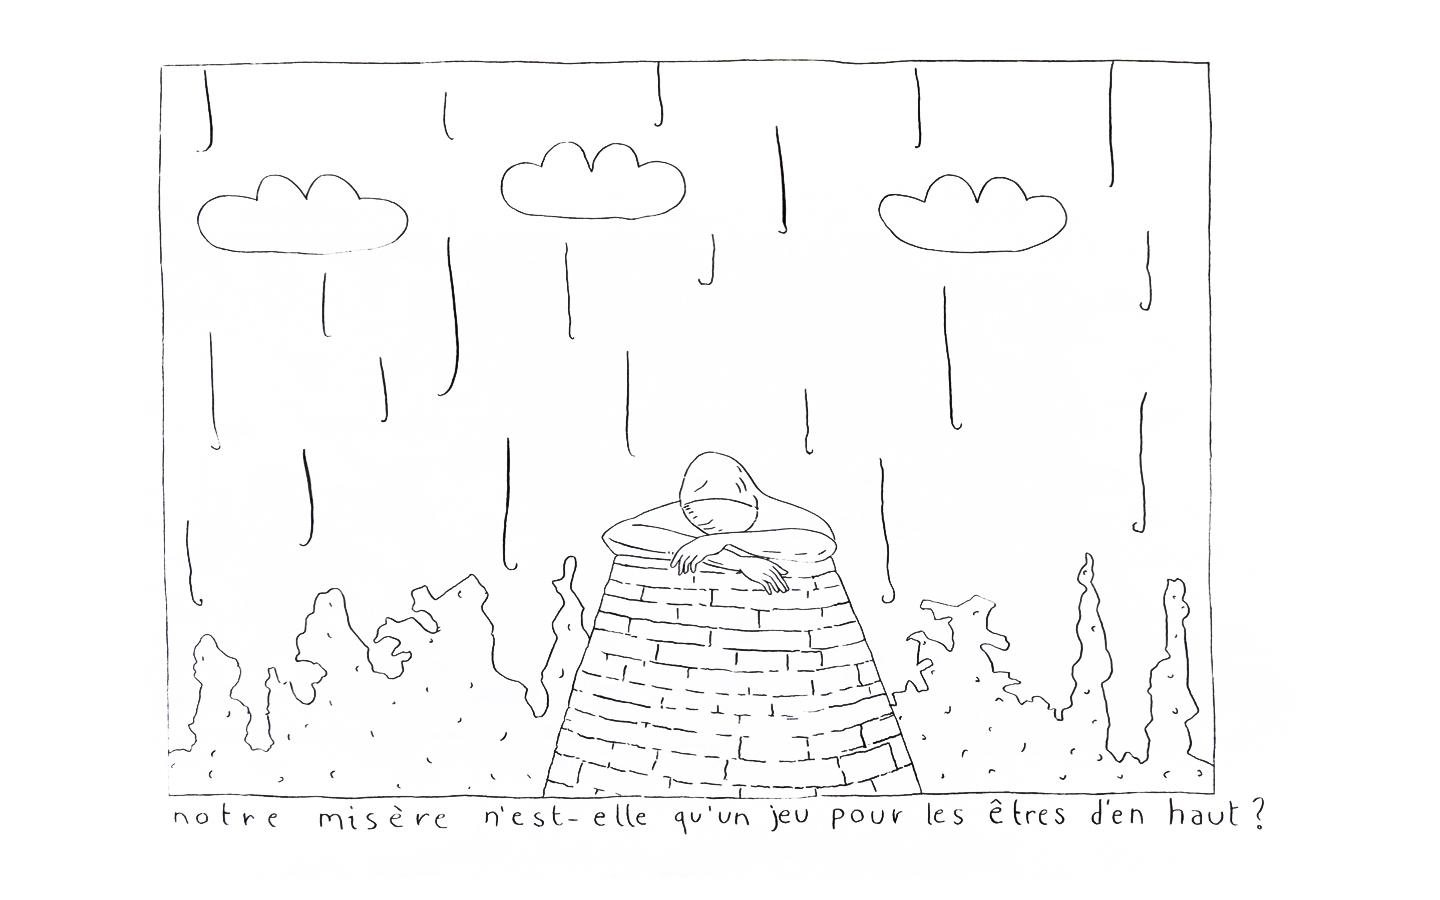 notre misère n'est-elle qu'un jeu pour les êtres d'en haut ?